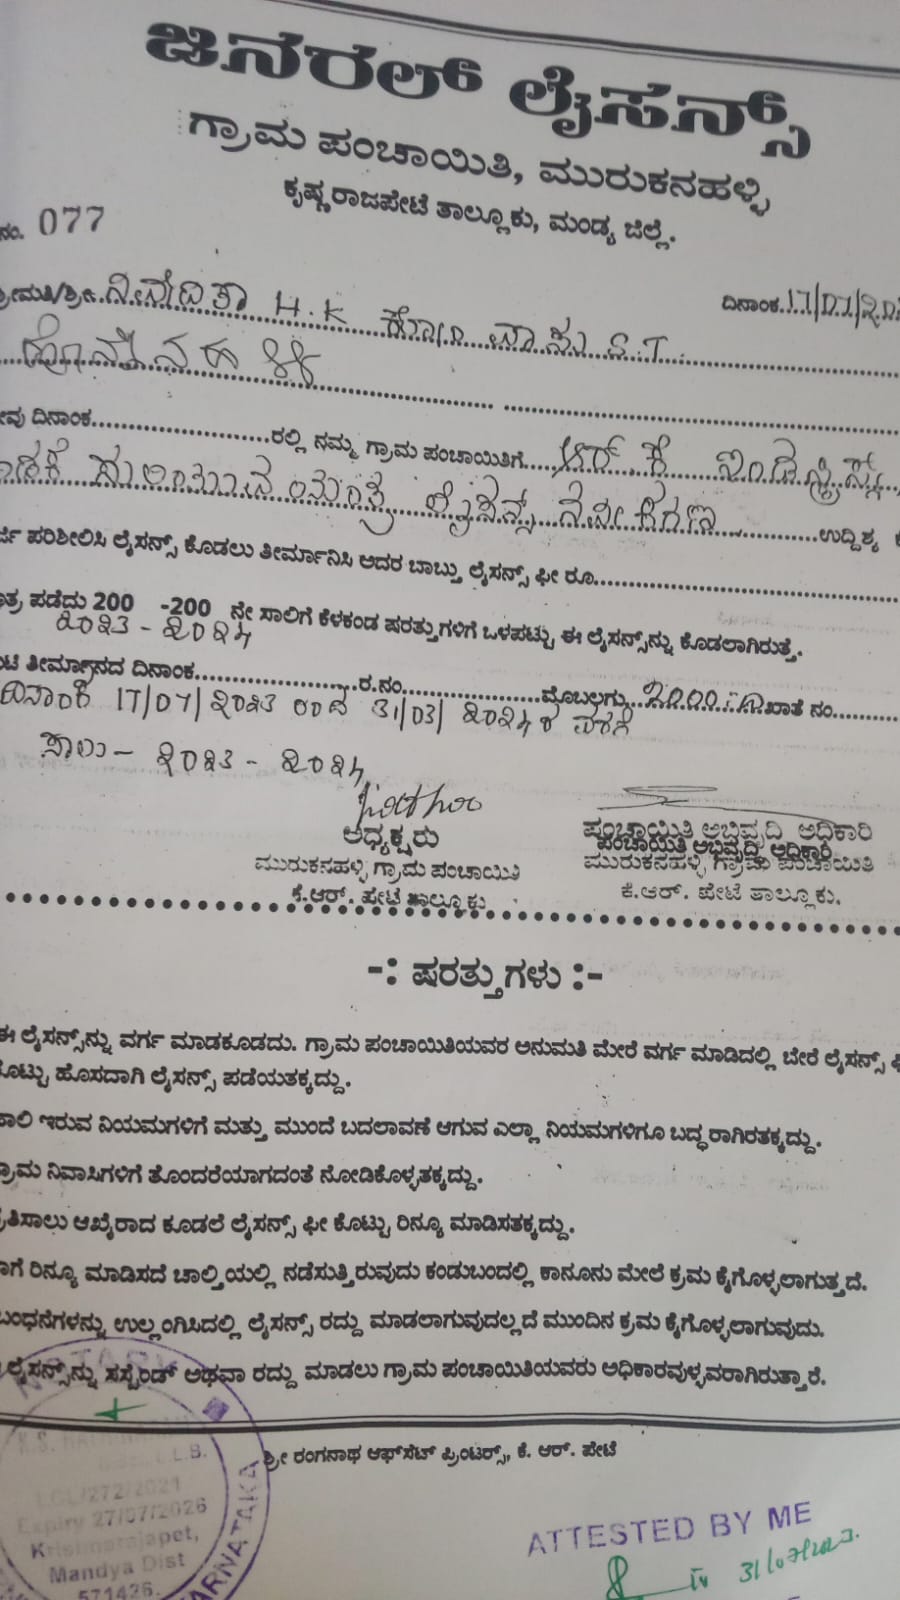 ಜನರಲ್ ಲೈಸನ್ಸ್
ಗ್ರಾಮ ಪಂಚಾಯಿತಿ, ಮುರುಕನಹಳ್ಳಿ
ಕೃಷ್ಣರಾಜಪೇಟೆ ತಾಲ್ಲೂಕು, ಮಂಡ್ಯ ಜಿಲ್ಲೆ.
ನಂ. 077
ದಿನಾಂಕ.17/07/೨೦
ಶ್ರೀಮತಿ/ಶ್ರೀ. ನಿವೇದಿತಾ H.K ಕೋಂ ವಾಸು S.T.
ದಿನಾಂಕ....................ರಲ್ಲಿ ನಮ್ಮ ಗ್ರಾಮ ಪಂಚಾಯಿತಿಗೆ.....ಆರ್ ಕೆ ಇಂಡಸ್ಟ್ರೀಸ್
ಲೈಸೆನ್ಸ್ ನವೀಕರಣ ............ಉದ್ದಿಶ್ಯ
ಪರಿಶೀಲಿಸಿ ಲೈಸನ್ಸ್ ಕೊಡಲು ತೀರ್ಮಾನಿಸಿ ಅದರ ಬಾಬ್ತು ಲೈಸನ್ಸ್ ಫೀ ರೂ..............................
ಪಡೆದು 200 -200 ನೇ ಸಾಲಿಗೆ ಕೆಳಕಂಡ ಷರತ್ತುಗಳಿಗೆ ಒಳಪಟ್ಟು ಈ ಲೈಸನ್ಸ್‌ನ್ನು ಕೊಡಲಾಗಿರುತ್ತೆ.
೨೦೨೩ - ೨೦೨೪
ತೀರ್ಮಾನದ ದಿನಾಂಕ....................ರ.ನಂ.................ಮೊಬಲಗು...೨೦೦೦=೦೦ ಖಾತೆ ನಂ..........
ದಿನಾಂಕ 17/07/೨೦೨೩ ರಿಂದ 31/03/ ೨೦೨೪ ರ ವರೆಗೆ
ಸಾಲು - ೨೦೨೩ - ೨೦೨೪
ಅಧ್ಯಕ್ಷರು
ಮುರುಕನಹಳ್ಳಿ ಗ್ರಾಮ ಪಂಚಾಯಿತಿ
ಕೆ.ಆರ್. ಪೇಟೆ ತಾಲ್ಲೂಕು
ಪಂಚಾಯಿತಿ ಅಭಿವೃದ್ಧಿ ಅಧಿಕಾರಿ
ಪಂಚಾಯಿತಿ ಅಭಿವೃದ್ಧಿ ಅಧಿಕಾರಿ
ಮುರುಕನಹಳ್ಳಿ ಗ್ರಾಮ ಪಂಚಾಯಿತಿ
ಕೆ.ಆರ್. ಪೇಟೆ ತಾಲ್ಲೂಕು.
-: ಷರತ್ತುಗಳು :-
ಈ ಲೈಸನ್ಸ್‌ನ್ನು ವರ್ಗ ಮಾಡಕೂಡದು. ಗ್ರಾಮ ಪಂಚಾಯಿತಿಯವರ ಅನುಮತಿ ಮೇರೆ ವರ್ಗ ಮಾಡಿದಲ್ಲಿ ಬೇರೆ ಲೈಸನ್ಸ್
ಹೊಸದಾಗಿ ಲೈಸನ್ಸ್ ಪಡೆಯತಕ್ಕದ್ದು.
ಇರುವ ನಿಯಮಗಳಿಗೆ ಮತ್ತು ಮುಂದೆ ಬದಲಾವಣೆ ಆಗುವ ಎಲ್ಲಾ ನಿಯಮಗಳಿಗೂ ಬದ್ಧರಾಗಿರತಕ್ಕದ್ದು.
ನಿವಾಸಿಗಳಿಗೆ ತೊಂದರೆಯಾಗದಂತೆ ನೋಡಿಕೊಳ್ಳತಕ್ಕದ್ದು.
ಆಖೈರಾದ ಕೂಡಲೆ ಲೈಸನ್ಸ್ ಫೀ ಕೊಟ್ಟು ರಿನ್ಯೂ ಮಾಡಿಸತಕ್ಕದ್ದು.
ರಿನ್ಯೂ ಮಾಡಿಸದೆ ಚಾಲ್ತಿಯಲ್ಲಿ ನಡೆಸುತ್ತಿರುವುದು ಕಂಡುಬಂದಲ್ಲಿ ಕಾನೂನು ಮೇಲೆ ಕ್ರಮ ಕೈಗೊಳ್ಳಲಾಗುತ್ತದೆ.
ಉಲ್ಲಂಗಿಸಿದಲ್ಲಿ ಲೈಸನ್ಸ್ ರದ್ದು ಮಾಡಲಾಗುವುದಲ್ಲದೆ ಮುಂದಿನ ಕ್ರಮ ಕೈಗೊಳ್ಳಲಾಗುವುದು.
ಲೈಸನ್ಸ್‌ನ್ನು ಸಸ್ಪೆಂಡ್ ಅಥವಾ ರದ್ದು ಮಾಡಲು ಗ್ರಾಮ ಪಂಚಾಯಿತಿಯವರು ಅಧಿಕಾರವುಳ್ಳವರಾಗಿರುತ್ತಾರೆ.
ಶ್ರೀ ರಂಗನಾಥ ಆಫ್‌ಸೆಟ್ ಪ್ರಿಂಟರ್ಸ್, ಕೆ. ಆರ್. ಪೇಟೆ
LCL/272/2021
Expiry 27/07/2026
Krishnarajapet,
Mandya Dist
571426.
ATTESTED BY ME